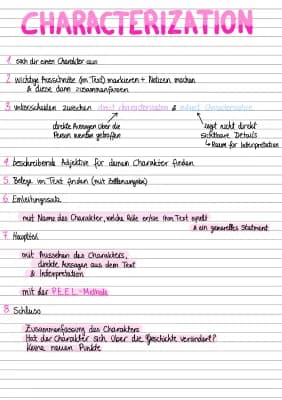 CHARACTERIZATION
1. sich dir einen Charakter aus
2. wichtige Ausschnitte (im Text) markieren + Notizen machen
& diese dann zusammenfassen
3. unterscheiden zwischen direct characterisation & indirect Characterisation
direkte Aussagen über die
Person werden getroffen
sagt nicht direkt
sichtbare Details
↳ Raum für Interpretation
4. beschreibende Adjektive für deinen Charakter finden
5. Belege im Text finden (mit Zeilenangabe)
6. Einleitungssatz
mit Name des Charakter, welche Rolle er/sie ihm Text spielt
& ein generelles Statment
7. Hauptteil
mit Aussehen des Charakters,
direkte Aussagen aus dem Text
& Interpretation
mit der P.E.E.L.-Methode
8. Schluss
Zusammenfassung des Charakters
Hat der Charakter sich über die Geschichte verändert?
Keine neuen Punkte